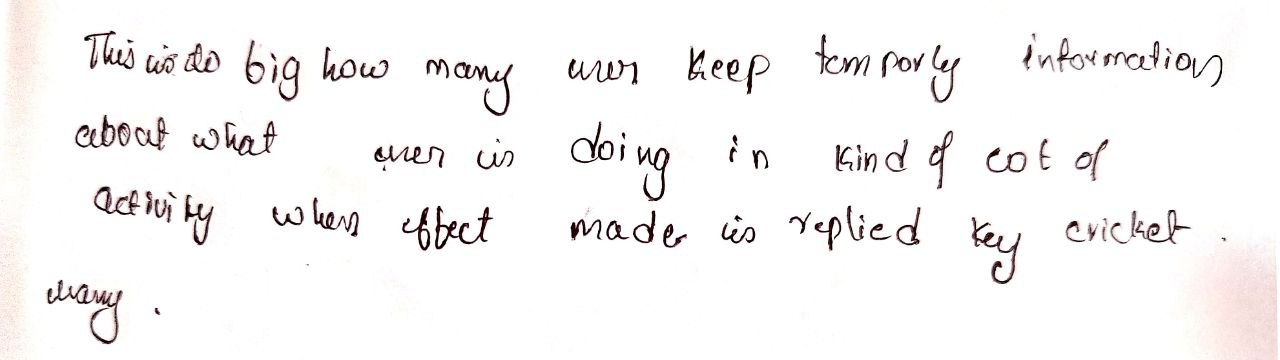 This is do big how many user keep temporly information
about what user is doing in kind of cot of
activity when effect made is replied key cricket.
many.